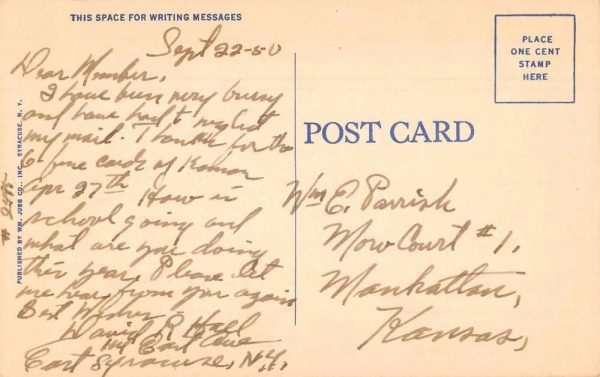 THIS SPACE FOR WRITING MESSAGES
Sept 22-50
Dear Member,
I have been very bussy
and have had to neglect
my mail. Thanks for the
6 fine cards of Kansas
Apr 27th How is
school going and
what are you doing
this year. Please let
me hear from you again
Best Wishes
David R Hall
East Ave
East Syracuse, N.Y.
# 2498
PUBLISHED BY WM. JUBB CO., INC., SYRACUSE, N. Y.
POST CARD
PLACE
ONE CENT
STAMP
HERE
Wm E. Parrish
Court #1,
Manhattan,
Kansas,